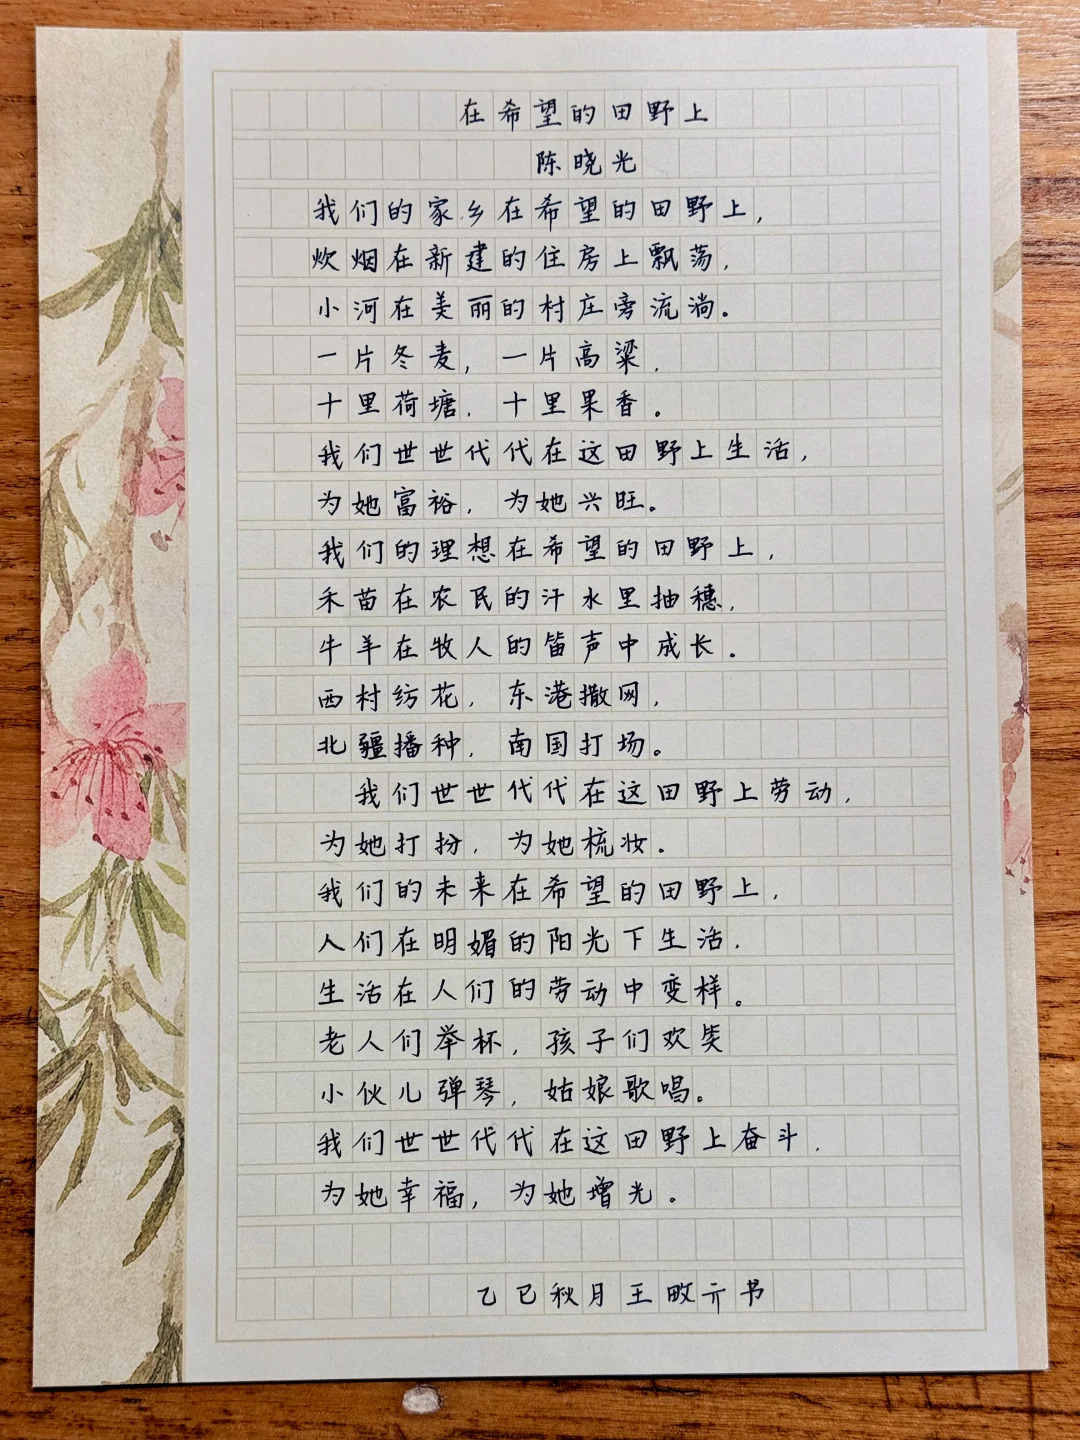 在希望的田野上
陈晓光
我们的家乡在希望的田野上,
炊烟在新建的住房上飘荡,
小河在美丽的村庄旁流淌。
一片冬麦,一片高粱,
十里荷塘,十里果香。
我们世世代代在这田野上生活,
为她富裕,为她兴旺。
我们的理想在希望的田野上,
禾苗在农民的汗水里抽穗,
牛羊在牧人的笛声中成长。
西村纺花,东港撒网,
北疆播种,南国打场。
我们世世代代在这田野上劳动,
为她打扮,为她梳妆。
我们的未来在希望的田野上,
人们在明媚的阳光下生活,
生活在人们的劳动中变样。
老人们举杯,孩子们欢笑
小伙儿弹琴,姑娘歌唱。
我们世世代代在这田野上奋斗,
为她幸福,为她增光。
乙巳秋月王畋亓书